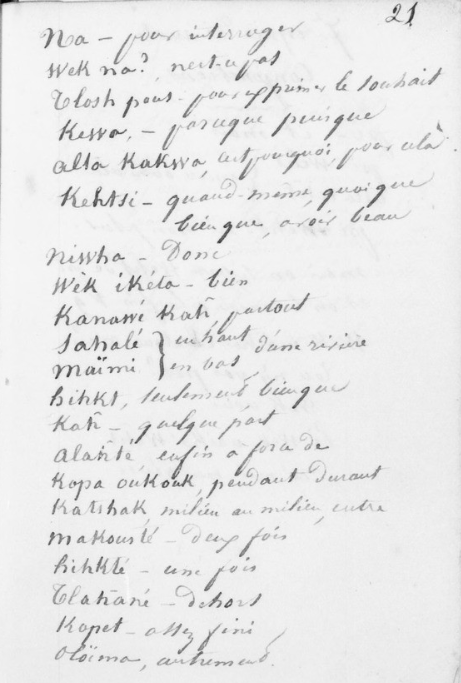 21
Na - pour interroger
Wek na? n'est-ce pas
Tlosh pous - pour exprimer le souhait
Kewa, - parceque puisque
alta Kakwa, c'est pourquoi, pour cela.
Kehtsi - quand-même, quoique
bien que, avoir beau
Niwha - Donc
Wèk ikéta - bien
Kanawé Kah partout
Sahalé } en haut d'une rivière
Maïmi } en bas
hihkt, seulement bien que
Kah - quelque part
alahté enfin a force de
Kopa oukouk, pendant Durant
Katshak milieu au milieu, entre
makousté - deux fois
hihkté - une fois
Tlahané - dehors
Kopet - assez fini
Oloïma, autrement.